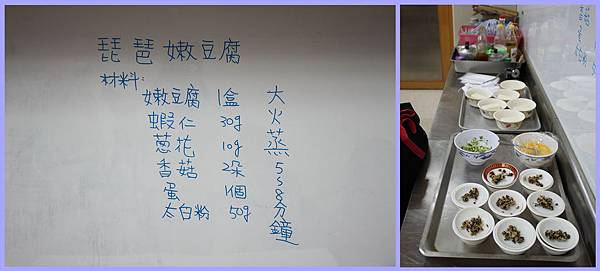 琵琶嫩豆腐
材料:
嫩豆腐 1盒
蝦仁 30g
蔥花 10g
香菇 2朵
蛋 1個
太白粉 50g
大火蒸5~8分鐘